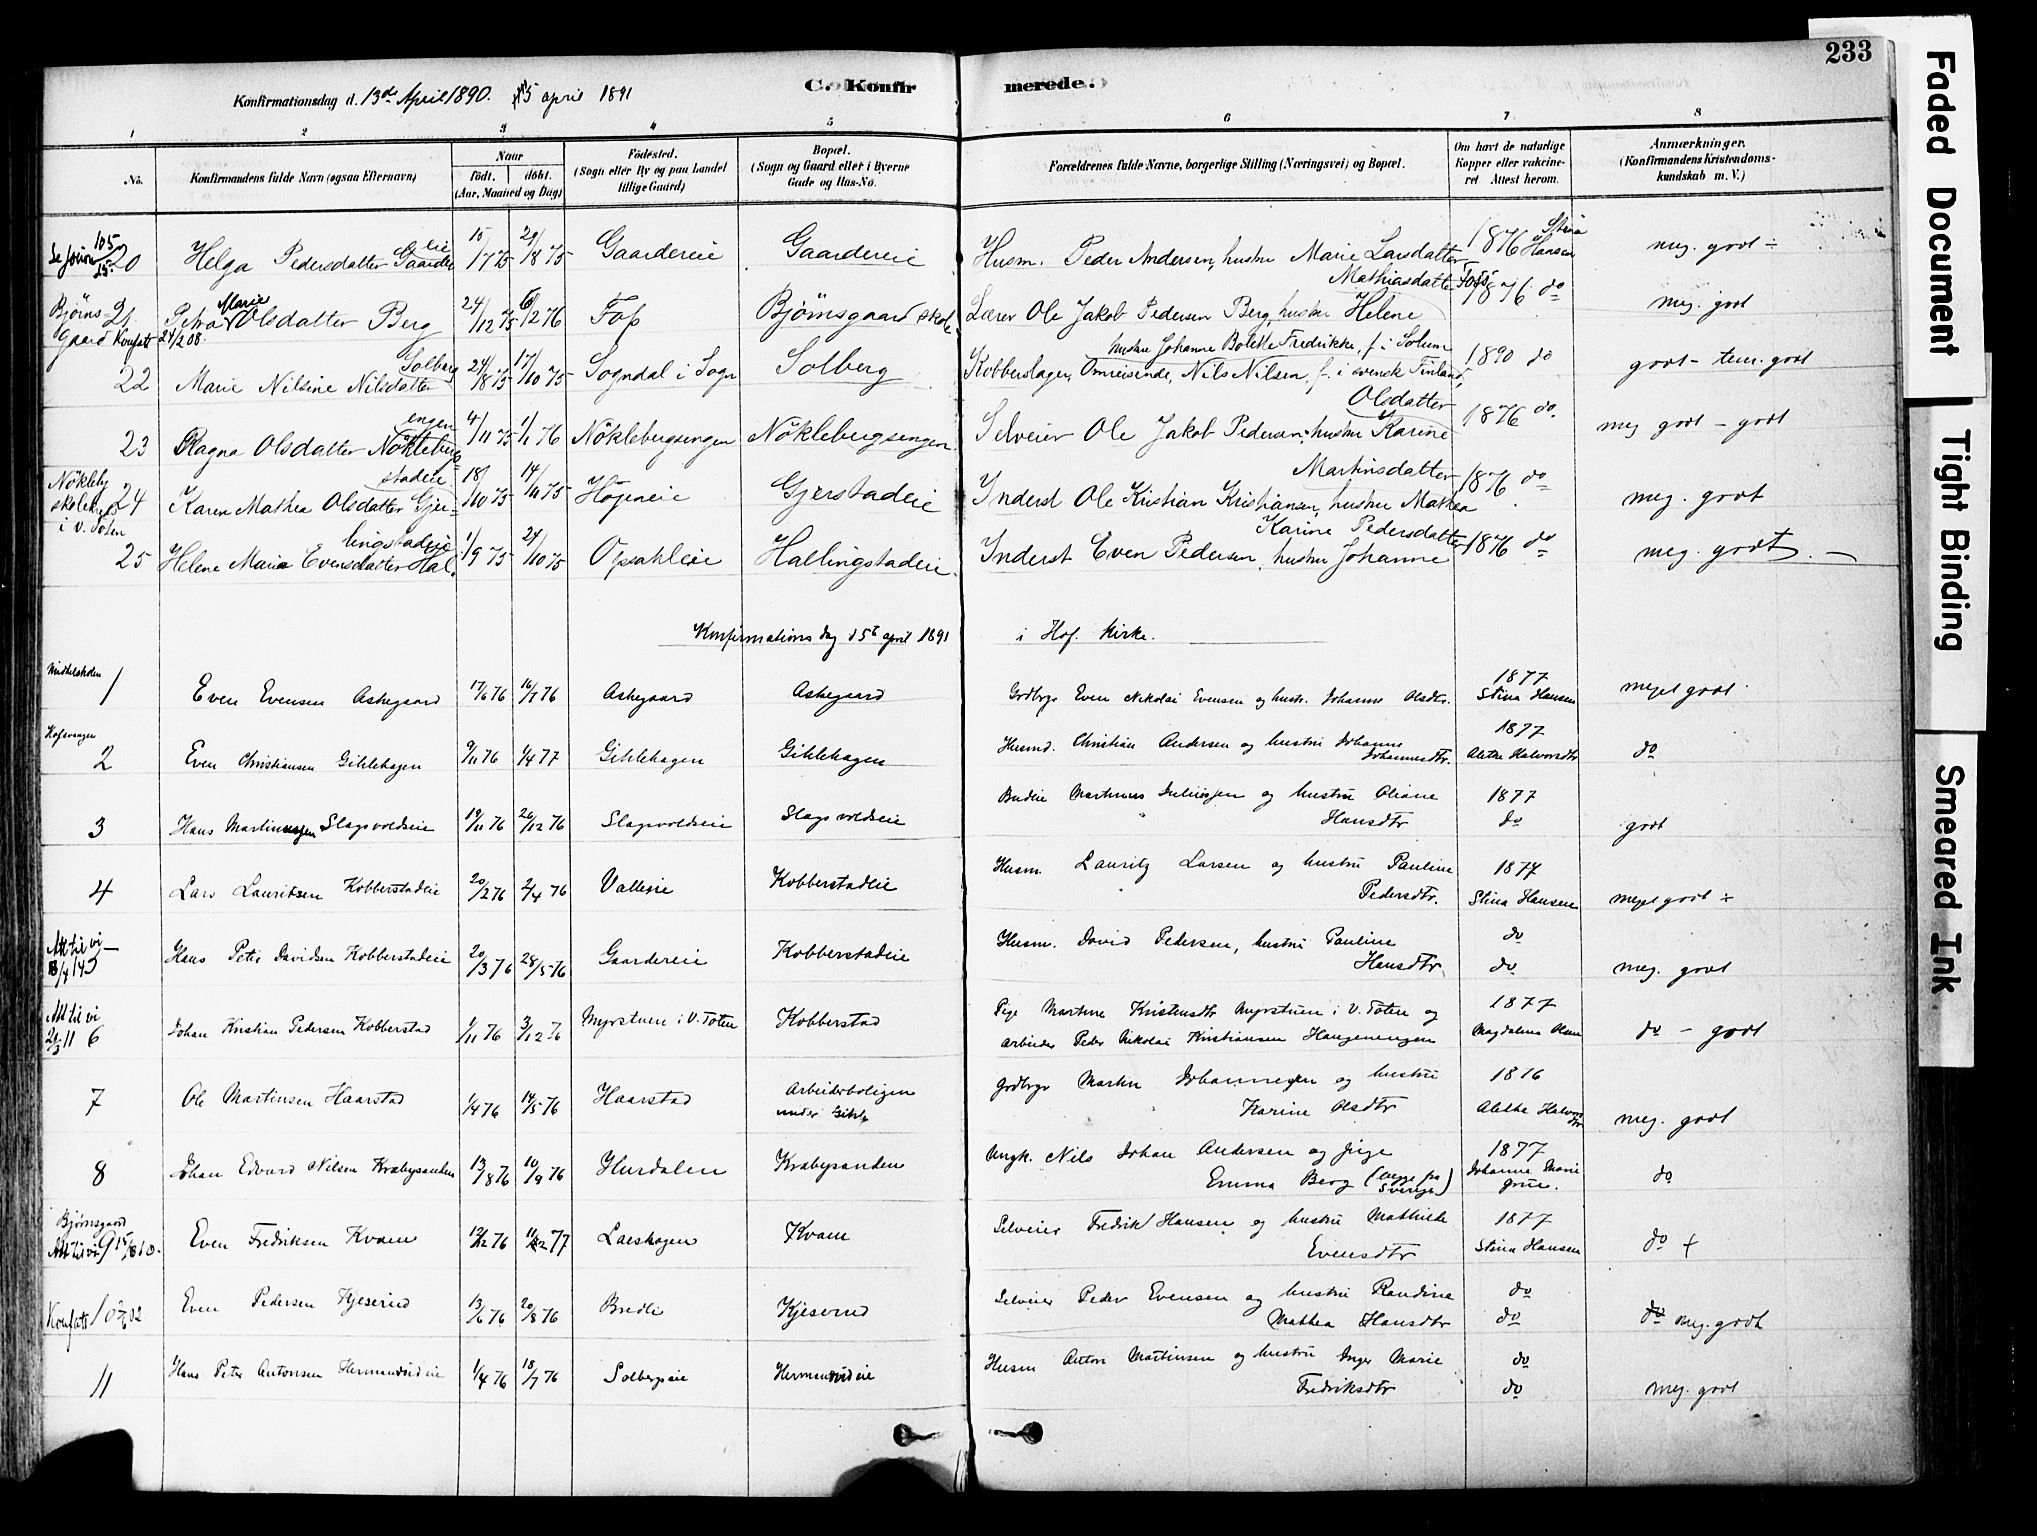 233
Faded Document
Tight Binding
Smeared Ink
C. Konfirmerede.
Konfirmationsdag d. 13de April 1890. 5 april 1891
1 2 3 4 5 6 7 8
No. Konfirmandens fulde Navn (ogsaa Efternavn) Naar født. døbt. (Aar, Maaned og Dag) Fødested. (Sogn eller By og paa Landet tillige Gaard) Bopæl. (Sogn og Gaard eller i Byerne Gade og Hus-No. Forældrenes fulde Navne, borgerlige Stilling (Næringsvei) og Bopæl. Om havt de naturlige Kopper eller vakcineret. Attest herom. Anmærkninger. (Konfirmandens Kristendomskundskab m. V.)
20 Helga Pedersdatter Gaardereie 15/7 75 20/8 75 Gaardereie Gaardereie Husm. Peder Andersen, hustru Marie Larsdatter 1876 Stina Hansen meg. godt ÷
Bjørnsgaard 21 Petra Marie Olsdatter Berg 24/12 75 6/2 76 Foss Bjørnsgaard skole Lærer Ole Jakob Pedersen Berg, hustru Helene Mathiasdatter Foss 1876 do meg. godt
Konfatt 24/2 08.
22 Marie Nilsine Nilsdatter Solberg 24/8 75 17/10 75 Sogndal i Sogn Solberg Kobberslager, Omreisende, Nils Nilsen, f. i svensk Finland, hustru Johanne Bolette Fredrikke, f. i Solum 1890 do godt - tem. godt
23 Ragna Olsdatter Nøklebergengen 4/11 75 1/1 76 Nøklebergsengen Nøklebergsengen Selveier Ole Jakob Pedersen, hustru Karine Olsdatter 1876 do meg godt - godt
Nøkleby skolekreds i V. Toten 24 Karen Mathea Olsdatter Gjerstadeie 18/10 75 14/11 75 Høieneie Gjerstadeie Inderst Ole Kristian Kristiansen, hustru Mathea Martinsdatter 1876 do meg. godt
25 Helene Maria Evensdatter Hallingstadeie 1/9 75 24/10 75 Opsahleie Hallingstadeie Inderst Even Pedersen, hustru Johanne Karine Pedersdatter 1876 do meg. godt. -
Konfirmationsdag d 5te april 1891 i Hof. kirke.
Middelskolen 1 Even Evensen Askegaard 17/6 76 16/7 76 Askegaard Askegaard Grdbrgr Even Nikolai Evensen og hustr. Johanne Olsdtr. 1877 Stina Hansen meget godt
Hofsvangen 2 Even Christiansen Gihlehagen 9/11 76 1/4 77 Gihlehagen Gihlehagen Husmd. Christian Andersen og hustru Johanne Johannesdtr. 1877 Alethe Halvorsdtr do
3 Hans Martinussen Slagsvoldseie 19/11 76 26/12 76 Slagsvoldseie Slagsvoldseie Martinus Juliussen og hustru Oliane Hansdtr 1877 do godt
4 Lars Lauritsen Kobberstadeie 20/2 76 2/4 76 Valleeie Kobberstadeie Husm. Lauritz Larsen og hustru Pauline Pedersdtr. 1877 Stina Hansen meget godt +
Att til vi 5 Hans Peter Davidsen Kobberstadeie 20/3 76 28/5 76 Gaardereie Kobberstadeie Husm. David Pedersen, hustru Pauline Hansdtr do do meg. godt
Att til vi 6 Johan Kristian Pedersen Kobberstad 1/11 76 3/12 76 Myrstuen i V. Toten Kobberstad Pige Martine Kristensdtr Myrstuen i V. Toten og arbeider Peder Nikolai Kristiansen Haugenengen 1877 Magdalena Olsen do - godt
7 Ole Martinsen Haarstad 1/4 76 14/5 76 Haarstad Arbeiderboligen under Gihle Grdbrgr Martin Johannesen og hustru Karine Olsdtr 1816 Alethe Halvorsdtr meg. godt
8 Johan Edvard Nilsen Kræbysanden 13/8 76 10/9 76 Hurdalen Kræbysanden Ungk. Nils Johan Andersen og pige Emma Berg (begge fra Sverige) 1877 Johanne Marie Grue. do
Bjørnsgaard Att til vi 9 Even Fredriksen Kvam 12/12 76 11/2 77 Larshagen Kvam Selveier Fredrik Hansen og hustru Mathilde Evensdtr 1877 Stina Hansen do +
Konfatt 10 Even Pedersen Kjeserud 13/6 76 20/8 76 Bredli Kjeserud Selveier Peder Evensen og hustru Randine Mathea Hansdtr do do do meg. godt
11 Hans Peter Antonsen Hermanrudeie 1/4 76 18/7 76 Solbergseie Hermanrudeie Husm Anton Martinsen og hustru Inger Marie Fredriksdtr do do meg. godt